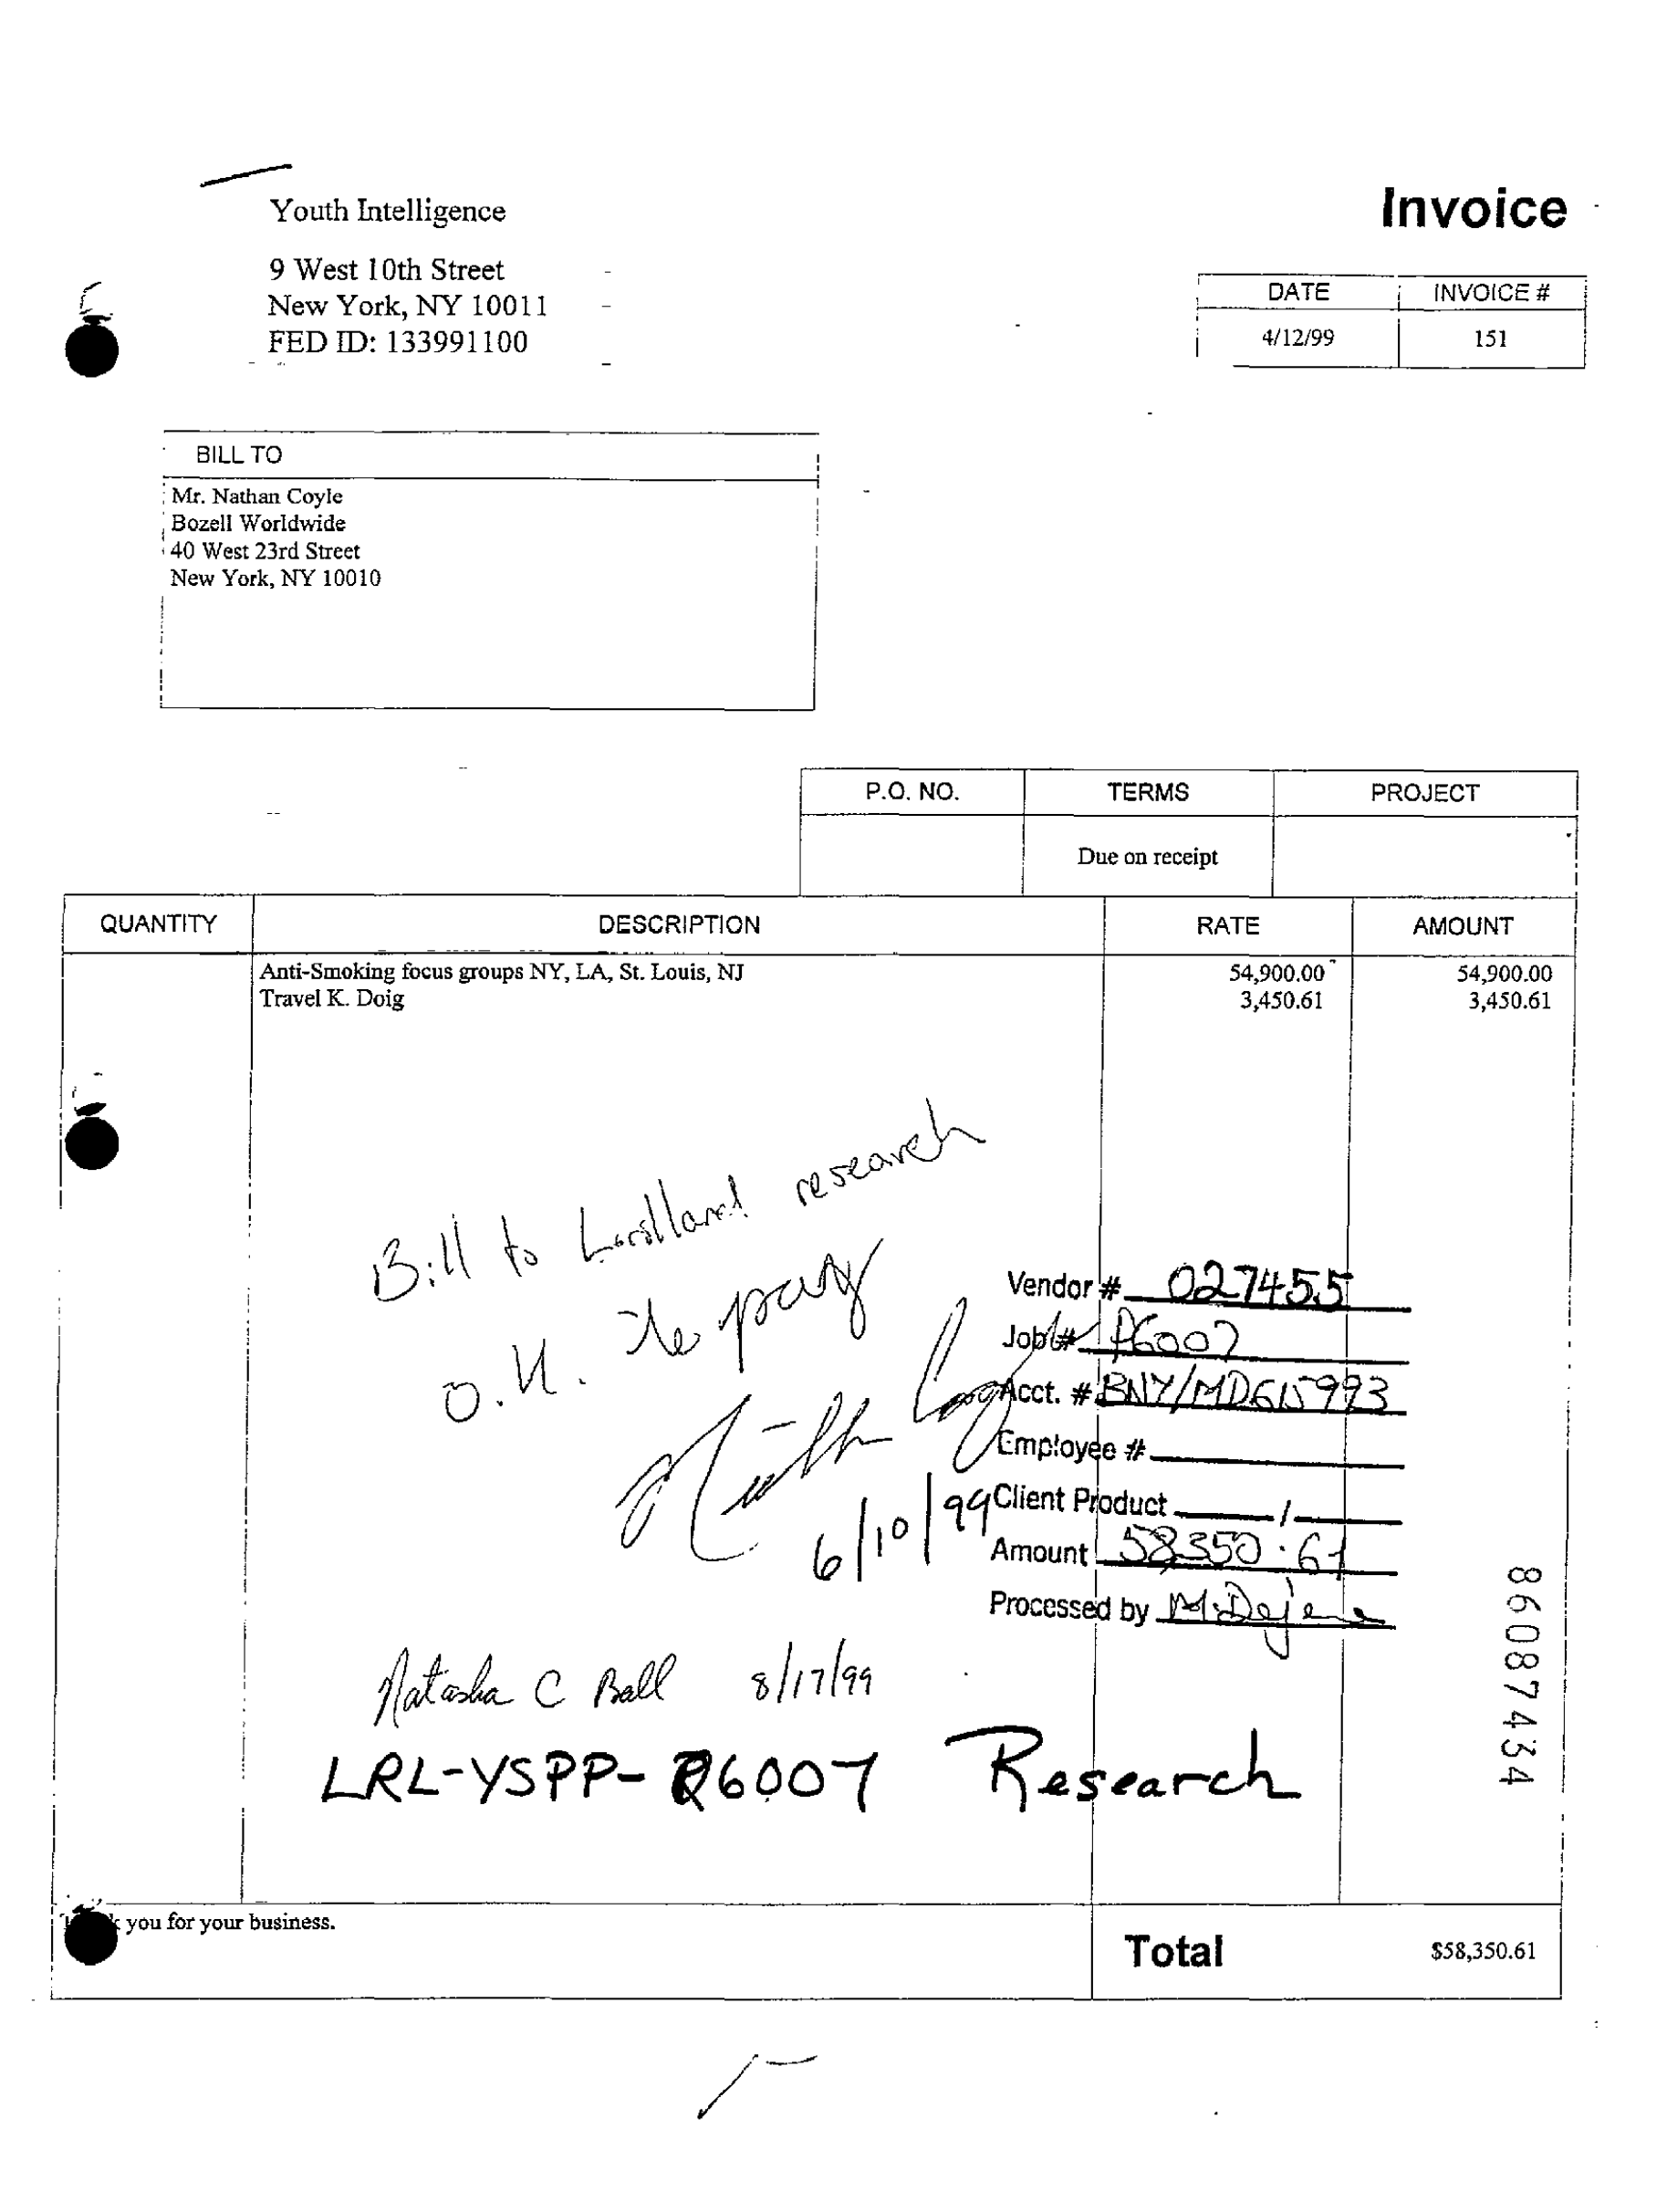 Youth Intelligence
Invoice
9 West 10th Street
New York, NY 10011
FED ID: 133991100
DATE INVOICE #
4/12/99 151
BILL TO
Mr. Nathan Coyle
Bozell Worldwide
40 West 23rd Street
New York, NY 10010
P.O. NO. TERMS PROJECT
Due on receipt
QUANTITY DESCRIPTION RATE AMOUNT
Anti-Smoking focus groups NY, LA, St. Louis, NJ 54,900.00 54,900.00
Travel K. Doig 3,450.61 3,450.61
Bill to Lorillard research
O.K. to pay
Nathan Coyle
6/10/99
Vendor # 027455
Job # 6007
Acct. # BNY/MD615993
Employee #
Client Product /
Amount 58350.61
Processed by M. Dejene
Natasha C Ball 8/17/99
LRL-YSPP-R6007 Research
86087434
you for your business.
Total $58,350.61